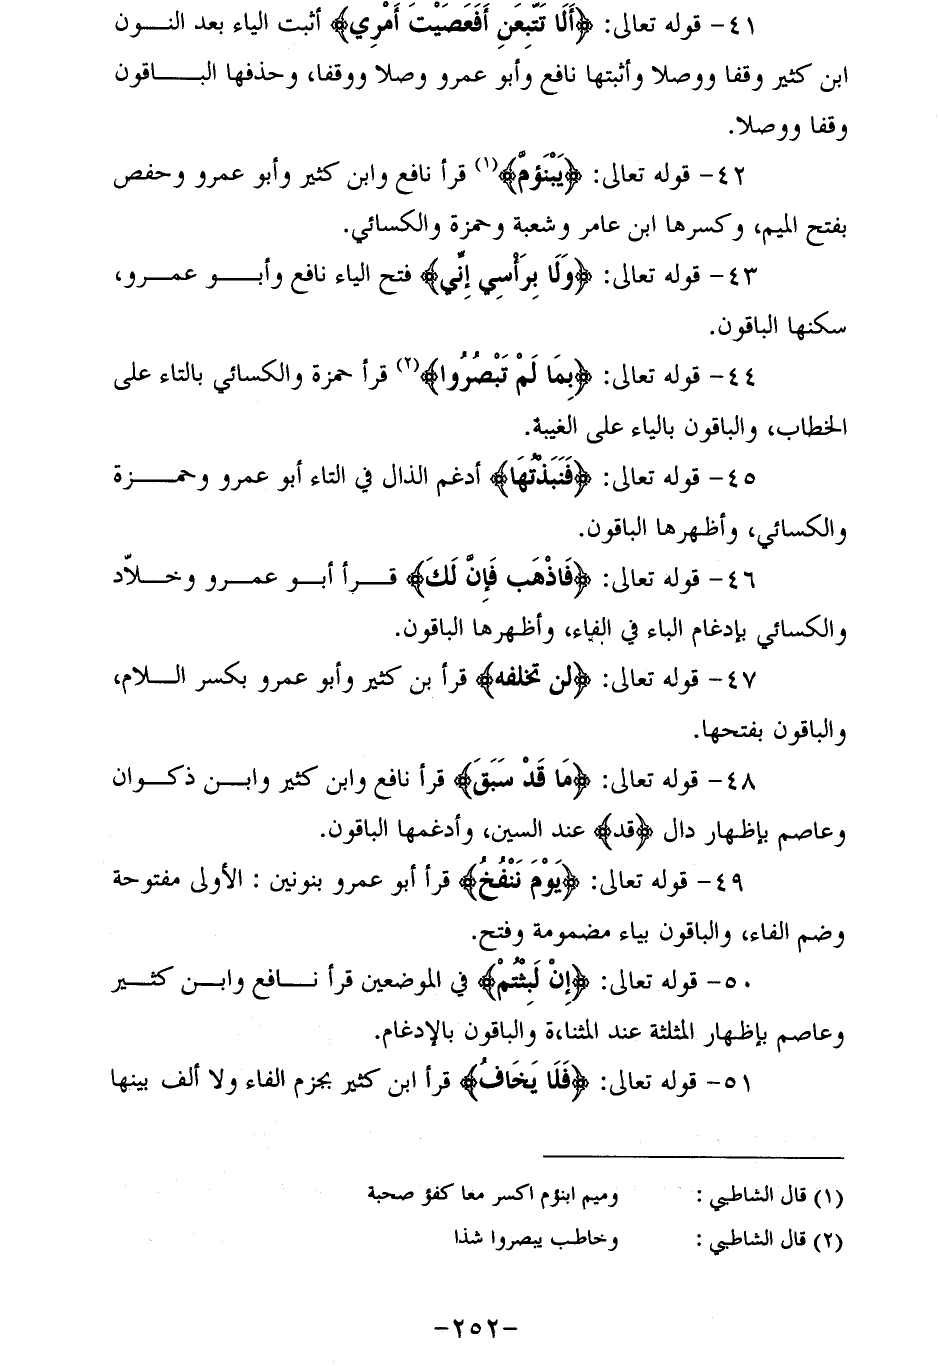 ٤١- قوله تعالى: ﴿أَلَا تَتَّبِعَنِ أَفَعَصَيْتَ أَمْرِي﴾ أثبت الياء بعد النون
ابن كثير وقفا ووصلا وأثبتها نافع وأبو عمرو وصلا ووقفا، وحذفها الباقون
وقفا ووصلا.
٤٢- قوله تعالى: ﴿يَبْنَؤُمَّ﴾(١) قرأ نافع وابن كثير وأبو عمرو وحفص
بفتح الميم، وكسرها ابن عامر وشعبة وحمزة والكسائي.
٤٣- قوله تعالى: ﴿وَلَا بِرَأْسِي إِنِّي﴾ فتح الياء نافع وأبو عمرو،
سكنها الباقون.
٤٤- قوله تعالى: ﴿بِمَا لَمْ تَبْصُرُوا﴾(٢) قرأ حمزة والكسائي بالتاء على
الخطاب، والباقون بالياء على الغيبة.
٤٥- قوله تعالى: ﴿فَنَبَذْتُهَا﴾ أدغم الذال في التاء أبو عمرو وحمزة
والكسائي، وأظهرها الباقون.
٤٦- قوله تعالى: ﴿فَاذْهَب فَإِنَّ لَكَ﴾ قرأ أبو عمرو وخلاّد
والكسائي بإدغام الباء في الفاء، وأظهرها الباقون.
٤٧- قوله تعالى: ﴿لن تخلفه﴾ قرأ بن كثير وأبو عمرو بكسر اللام،
والباقون بفتحها.
٤٨- قوله تعالى: ﴿مَا قَدْ سَبَقَ﴾ قرأ نافع وابن كثير وابن ذكوان
وعاصم بإظهار دال ﴿قد﴾ عند السين، وأدغمها الباقون.
٤٩- قوله تعالى: ﴿يَوْمَ نَنْفُخُ﴾ قرأ أبو عمرو بنونين : الأولى مفتوحة
وضم الفاء، والباقون بياء مضمومة وفتح.
٥٠- قوله تعالى: ﴿إِنْ لَبِثْتُمْ﴾ في الموضعين قرأ نافع وابن كثير
وعاصم بإظهار المثلثة عند المثناءة والباقون بالإدغام.
٥١- قوله تعالى: ﴿فَلَا يَخَافُ﴾ قرأ ابن كثير بجزم الفاء ولا ألف بينها
(١) قال الشاطبي : وميم ابنؤم اكسر معا كفؤ صحبة
(٢) قال الشاطبي : وخاطب يبصروا شذا
-٢٥٢-